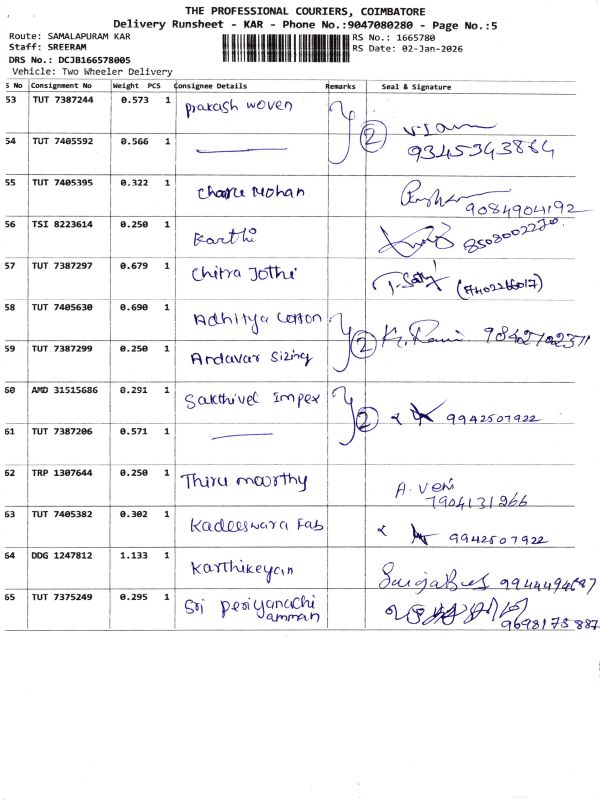 THE PROFESSIONAL COURIERS, COIMBATORE
Delivery Runsheet - KAR - Phone No.:9047080280 - Page No.:5
Route: SAMALAPURAM KAR
RS No.: 1665780
Staff: SREERAM
RS Date: 02-Jan-2026
DRS No.: DCJB166578005
Vehicle: Two Wheeler Delivery
S No Consignment No Weight PCS Consignee Details Remarks Seal & Signature
53 TUT 7387244 0.573 1 Prakash woven 2
54 TUT 7405592 0.566 1 9345343864
55 TUT 7405395 0.322 1 Charu Mohan 9084904192
56 TSI 8223614 0.250 1 Karthi
57 TUT 7387297 0.679 1 Chitra Jothi
58 TUT 7405630 0.690 1 Adhitya Cotton
59 TUT 7387299 0.250 1 Andavar Sizing 2 K. Rani
60 AMD 31515686 0.291 1 Sakthivel Impex 2 9942507922
61 TUT 7387206 0.571 1
62 TRP 1307644 0.250 1 Thiru moorthy A. Veni
7904131266
63 TUT 7405382 0.302 1 Kadeeswara Fab 9942507922
64 DDG 1247812 1.133 1 Karthikeyan
65 TUT 7375249 0.295 1 Sri Periyanachi
amman 9698175887